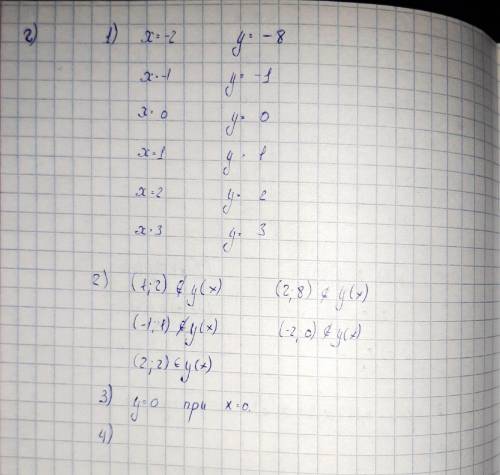 г) 1) x=-2 y=-8
x=-1 y=-1
x=0 y=0
x=1 y=1
x=2 y=2
x=3 y=3
2) (1;2) ∉ y(x) (2;8) ∉ y(x)
(-1;1) ∉ y(x) (-2;0) ∉ y(x)
(2;2) ∈ y(x)
3) y=0 при x=0.
4)